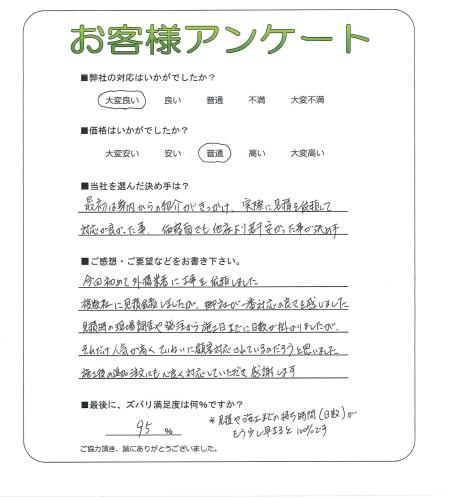 お客様アンケート
■弊社の対応はいかがでしたか？
大変良い 良い 普通 不満 大変不満
■価格はいかがでしたか？
大変安い 安い 普通 高い 大変高い
■当社を選んだ決め手は？
最初は身内からの紹介がきっかけ、実際に見積を依頼して
対応が良かった事、価格面でも他店より若干安かった事が決め手
■ご感想・ご要望などをお書き下さい。
今回初めて外構業者に工事を依頼しました
複数社に見積依頼しましたが、御社が一番対応の良さを感じました
見積時の現場調査や発注から施工日までに日数が掛かりましたが、
それだけ人気が高くていねいに顧客対応されているのだろうと思いました
施工後の追加注文にも心良く対応していただき感謝します
■最後に、ズバリ満足度は何％ですか？
95 %
＊見積や施工までの待ち時間(日数)が
もう少し早まると100%です
ご協力頂き、誠にありがとうございました。